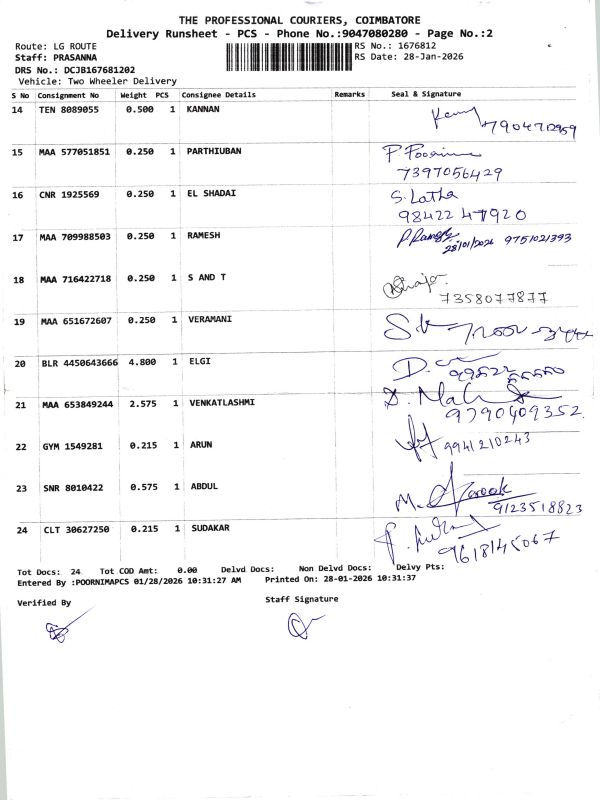 THE PROFESSIONAL COURIERS, COIMBATORE
Delivery Runsheet - PCS - Phone No.:9047080280 - Page No.:2
Route: LG ROUTE RS No.: 1676812
Staff: PRASANNA RS Date: 28-Jan-2026
DRS No.: DCJB167681202
Vehicle: Two Wheeler Delivery
S No Consignment No Weight PCS Consignee Details Remarks Seal & Signature
14 TEN 8089055 0.500 1 KANNAN
15 MAA 577051851 0.250 1 PARTHIUBAN
7397056429
16 CNR 1925569 0.250 1 EL SHADAI S. Latha
98422 47920
17 MAA 709988503 0.250 1 RAMESH
28/01/2026 9751021393
18 MAA 716422718 0.250 1 S AND T
7358077877
19 MAA 651672607 0.250 1 VERAMANI
20 BLR 4450643666 4.800 1 ELGI
21 MAA 653849244 2.575 1 VENKATLASHMI
9790409352
22 GYM 1549281 0.215 1 ARUN
9941210243
23 SNR 8010422 0.575 1 ABDUL
9123518823
24 CLT 30627250 0.215 1 SUDAKAR
9618145067
Tot Docs: 24 Tot COD Amt: 0.00 Delvd Docs: Non Delvd Docs: Delvy Pts:
Entered By :POORNIMAPCS 01/28/2026 10:31:27 AM Printed On: 28-01-2026 10:31:37
Verified By Staff Signature